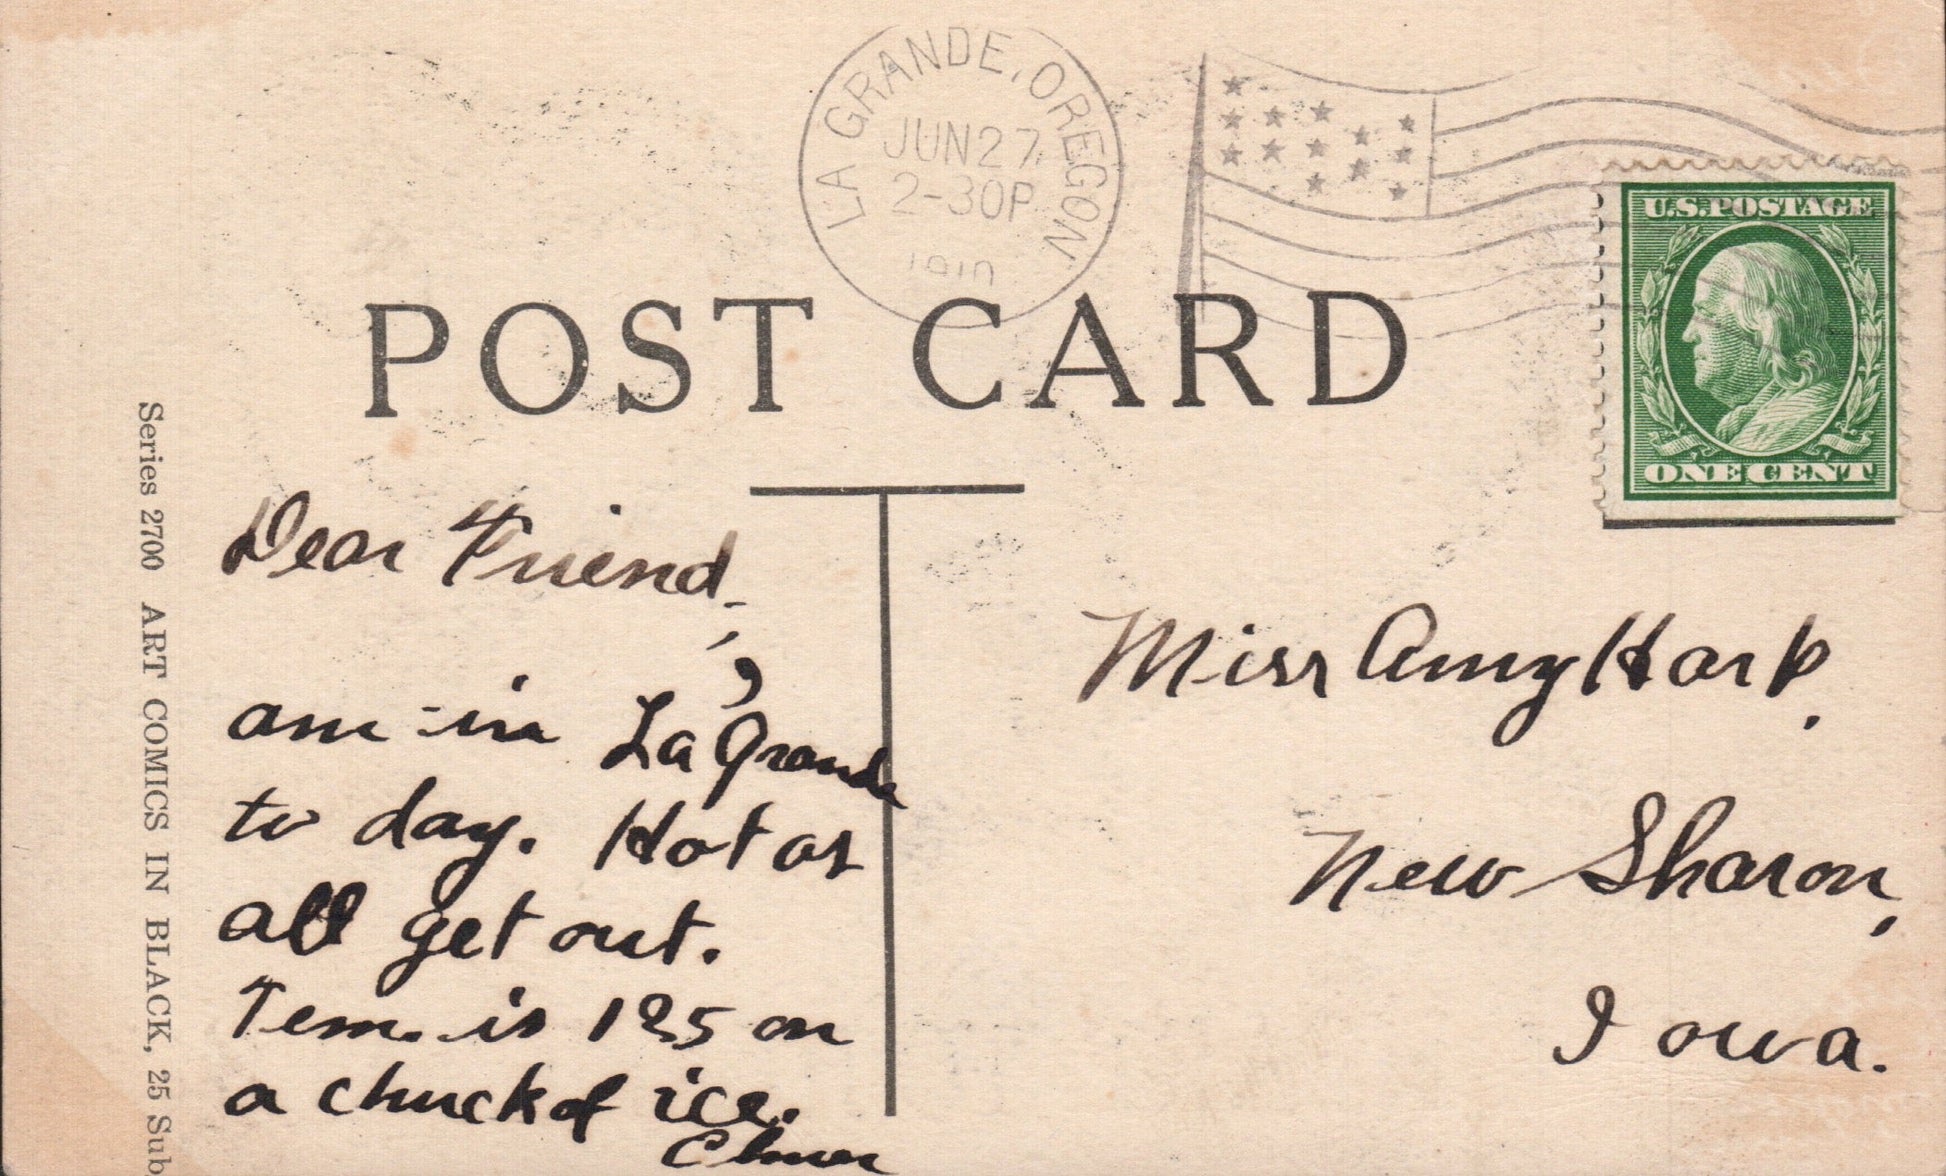 LA GRANDE, OREGON
JUN 27
2-30P
1910
U.S. POSTAGE
ONE CENT
POST CARD
Series 2700 ART COMICS IN BLACK, 25 Sub
Dear Friend,
am in La Grande
to day. Hot as
all get out.
Tem. is 125 on
a chuck of ice.
Elmer
Miss Amy Harp,
New Sharon,
Iowa.